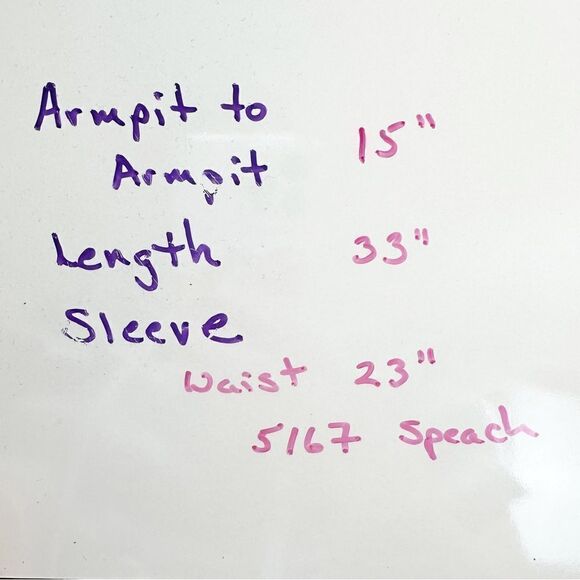 Armpit to
Armpit 15"
Length 33"
Sleeve
Waist 23"
5167 Speach